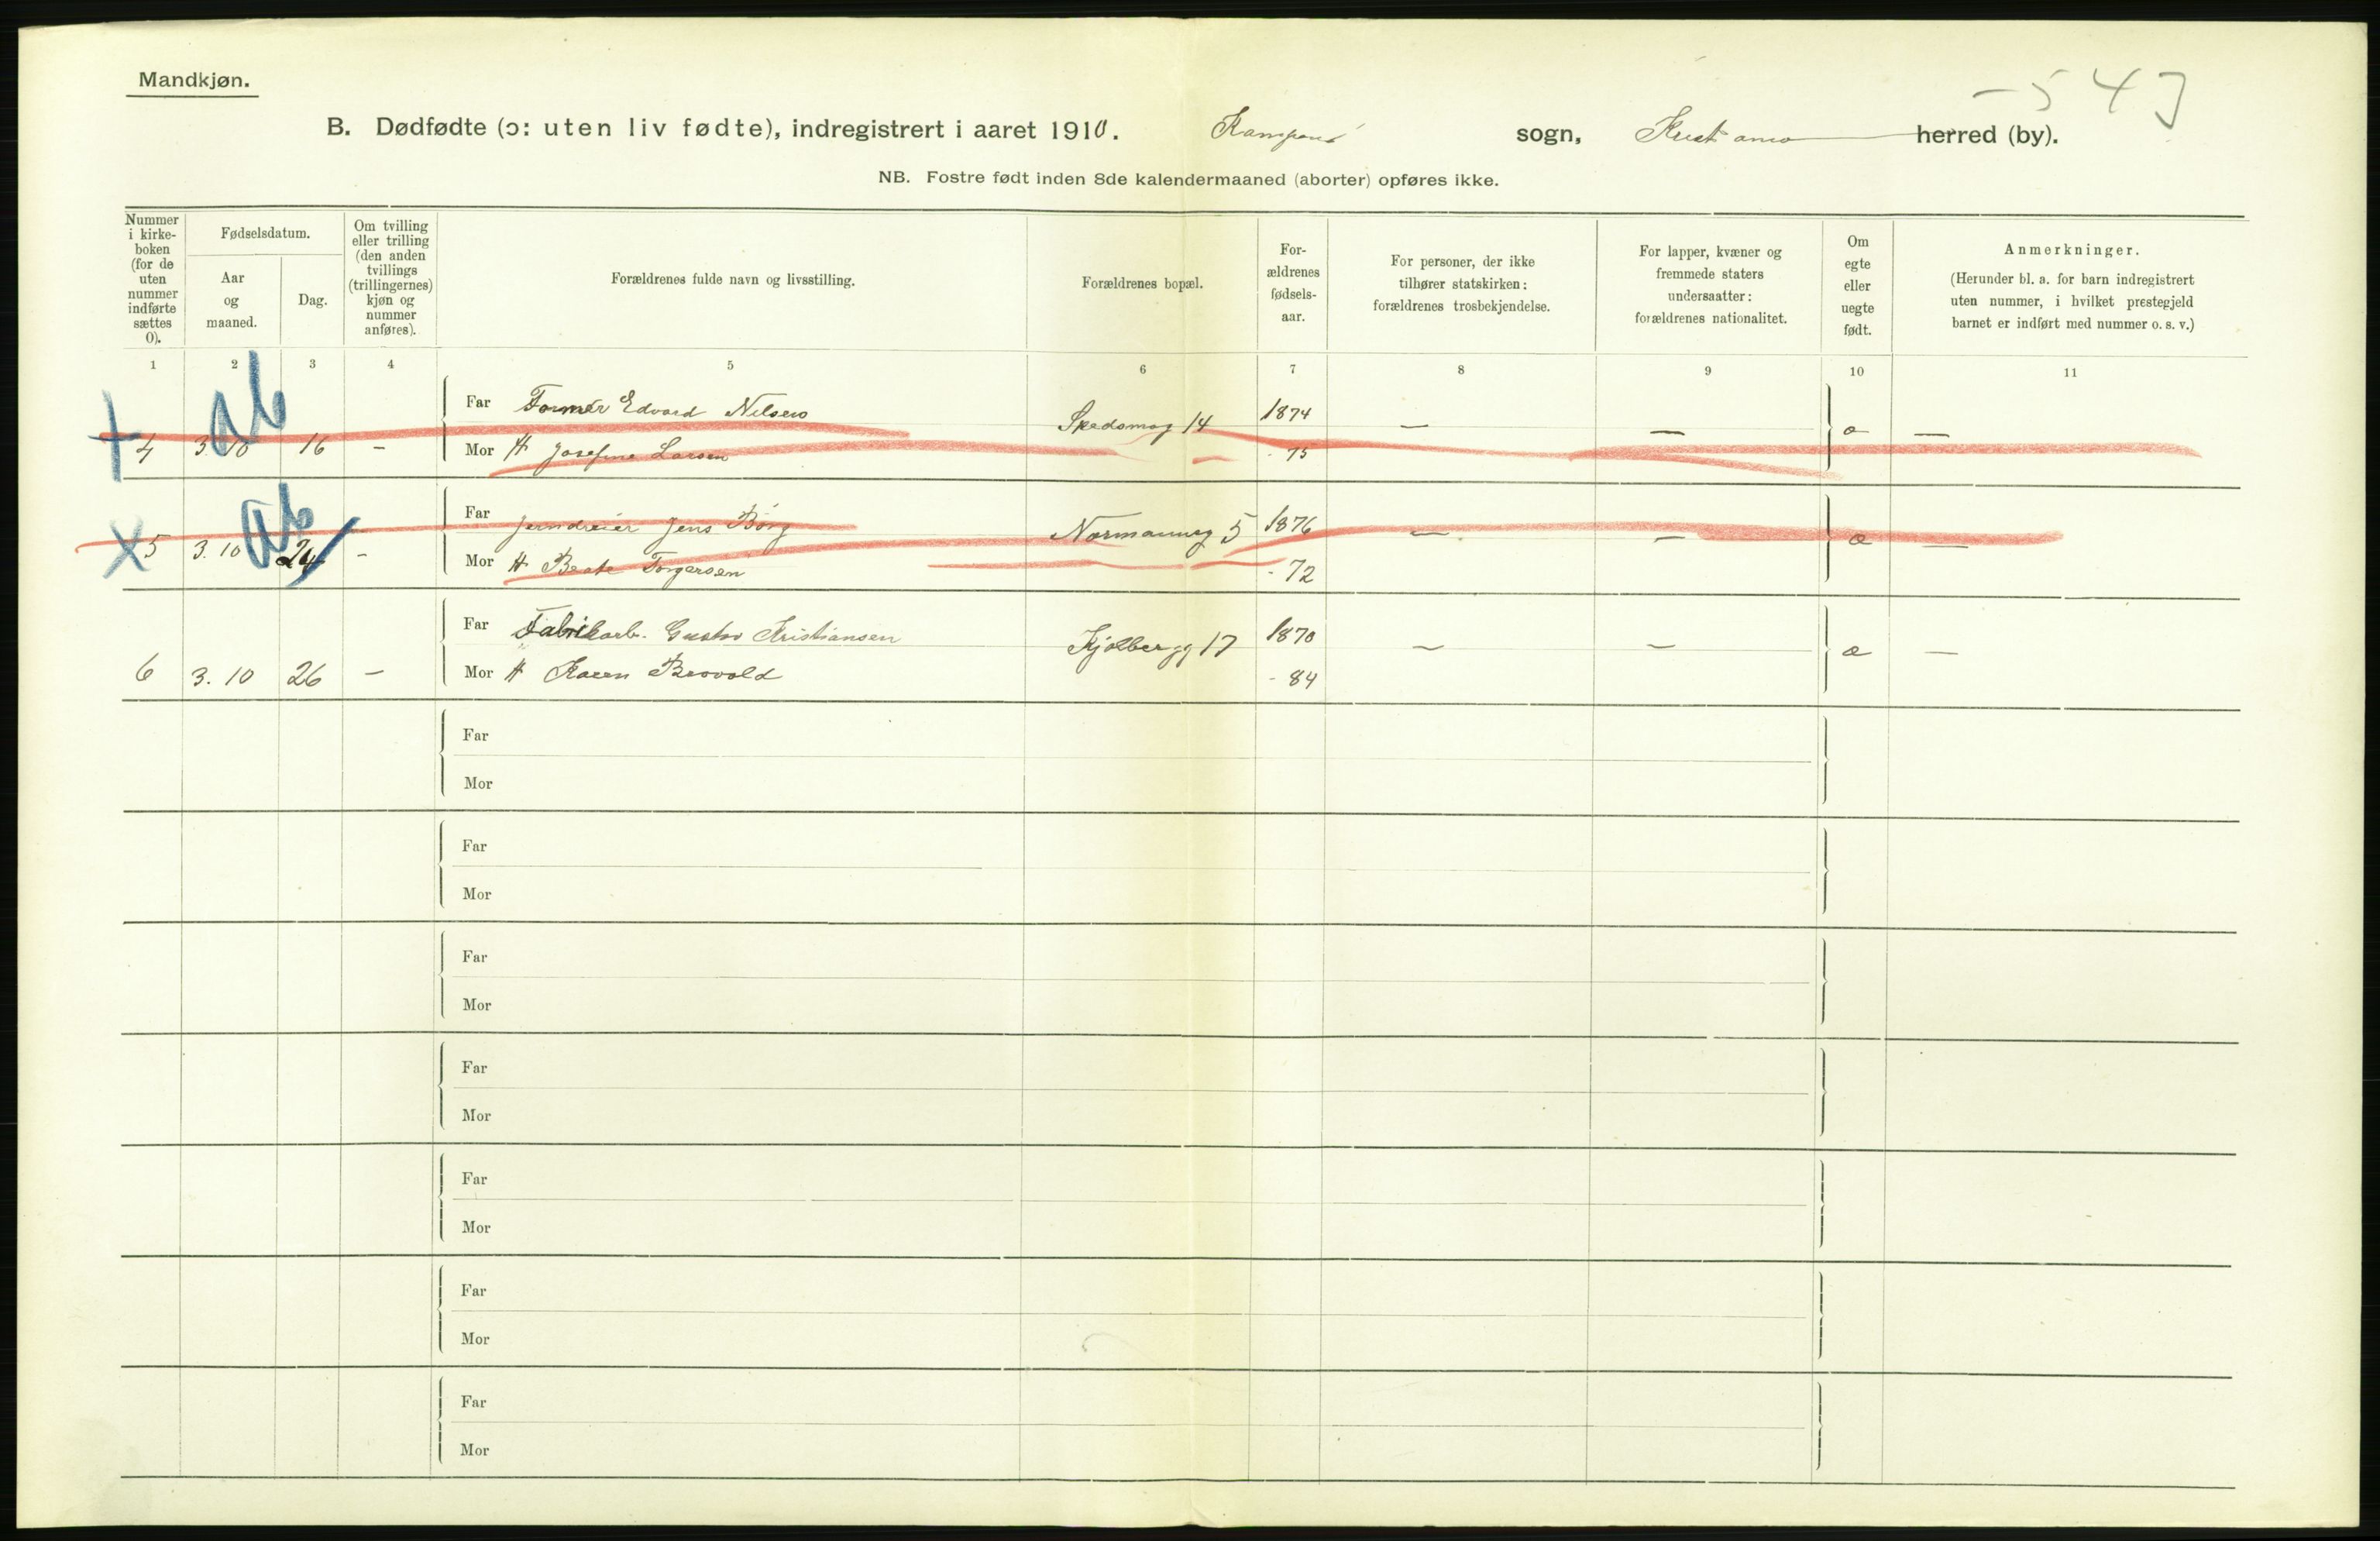 Mandkjøn.
- 543
B. Dødfødte (ɔ: uten liv fødte), indregistrert i aaret 1910. Kampens sogn, Kristiania herred (by).
NB. Fostre født inden 8de kalendermaaned (aborter) opføres ikke.
Nummer i kirke-boken (for de uten nummer indførte sættes 0).
Fødselsdatum.
Aar og maaned.
Dag.
Om tvilling eller trilling (den anden tvillings (trillingernes) kjøn og nummer anføres).
Forældrenes fulde navn og livsstilling.
Forældrenes bopæl.
For-ældrenes fødsels-aar.
For personer, der ikke tilhører statskirken: forældrenes trosbekjendelse.
For lapper, kvæner og fremmede staters undersaatter: forældrenes nationalitet.
Om egte eller uegte født.
Anmerkninger.
(Herunder bl. a. for barn indregistrert uten nummer, i hvilket prestegjeld barnet er indført med nummer o. s. v.)
1 2 3 4 5 6 7 8 9 10 11
ab
Far Former Edvard Nilsen Skedsmog 14 1874 — — e —
4 3. 10 16 – Mor H Josefine Larsen - 75
ab
Far Jerndreier Jens Börg Normanng 5 1876 — — e —
5 3. 10 24 – Mor H Beate Torgersen - 72
Far Fabrikarb. Gustav Kristiansen Kjølbergg 17 1870 — — e —
6 3. 10 26 – Mor H Karen Brovold - 84
Far
Mor
Far
Mor
Far
Mor
Far
Mor
Far
Mor
Far
Mor
Far
Mor